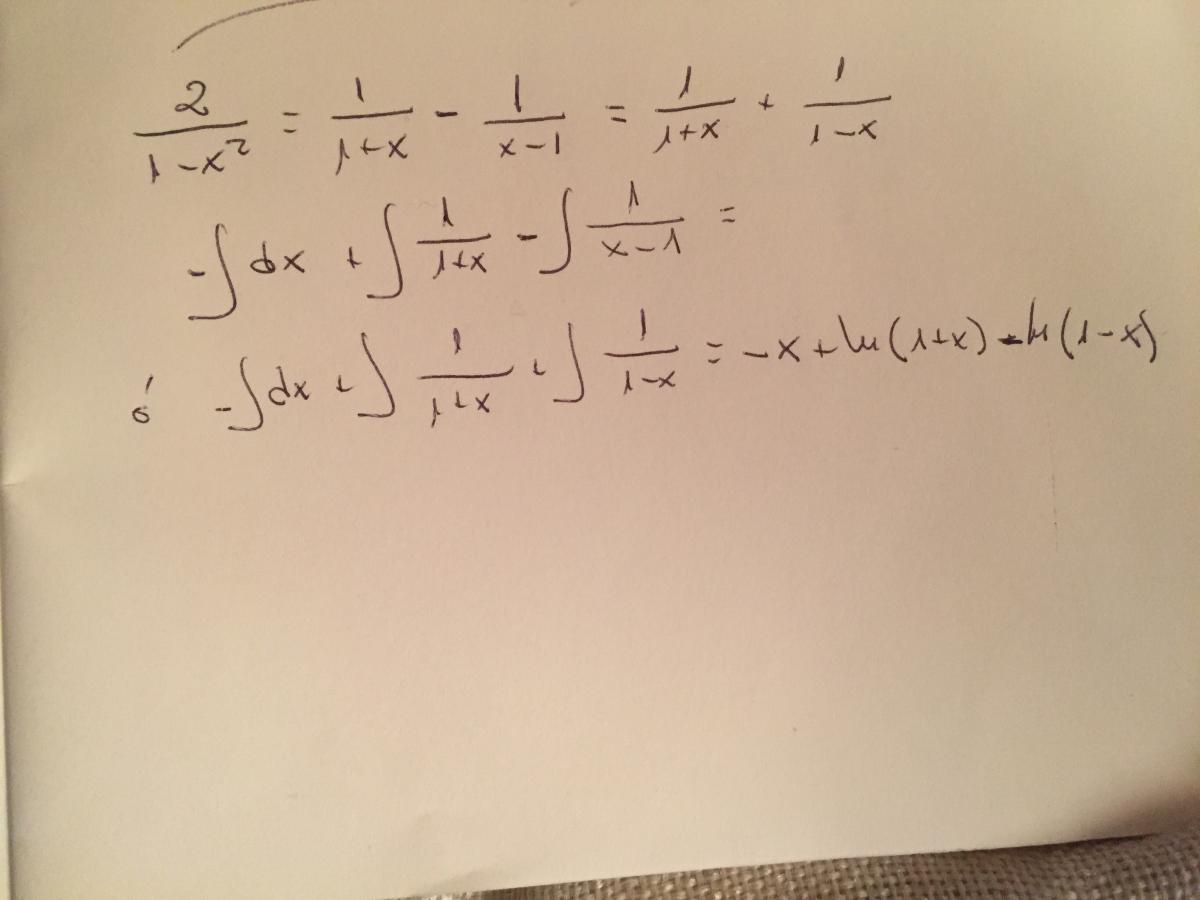 2/(1-x²) = 1/(1+x) - 1/(x-1) = 1/(1+x) + 1/(1-x)
-∫dx + ∫1/(1+x) - ∫1/(x-1) =
ó -∫dx + ∫1/(1+x) + ∫1/(1-x) = -x + ln(1+x) - ln(1-x)